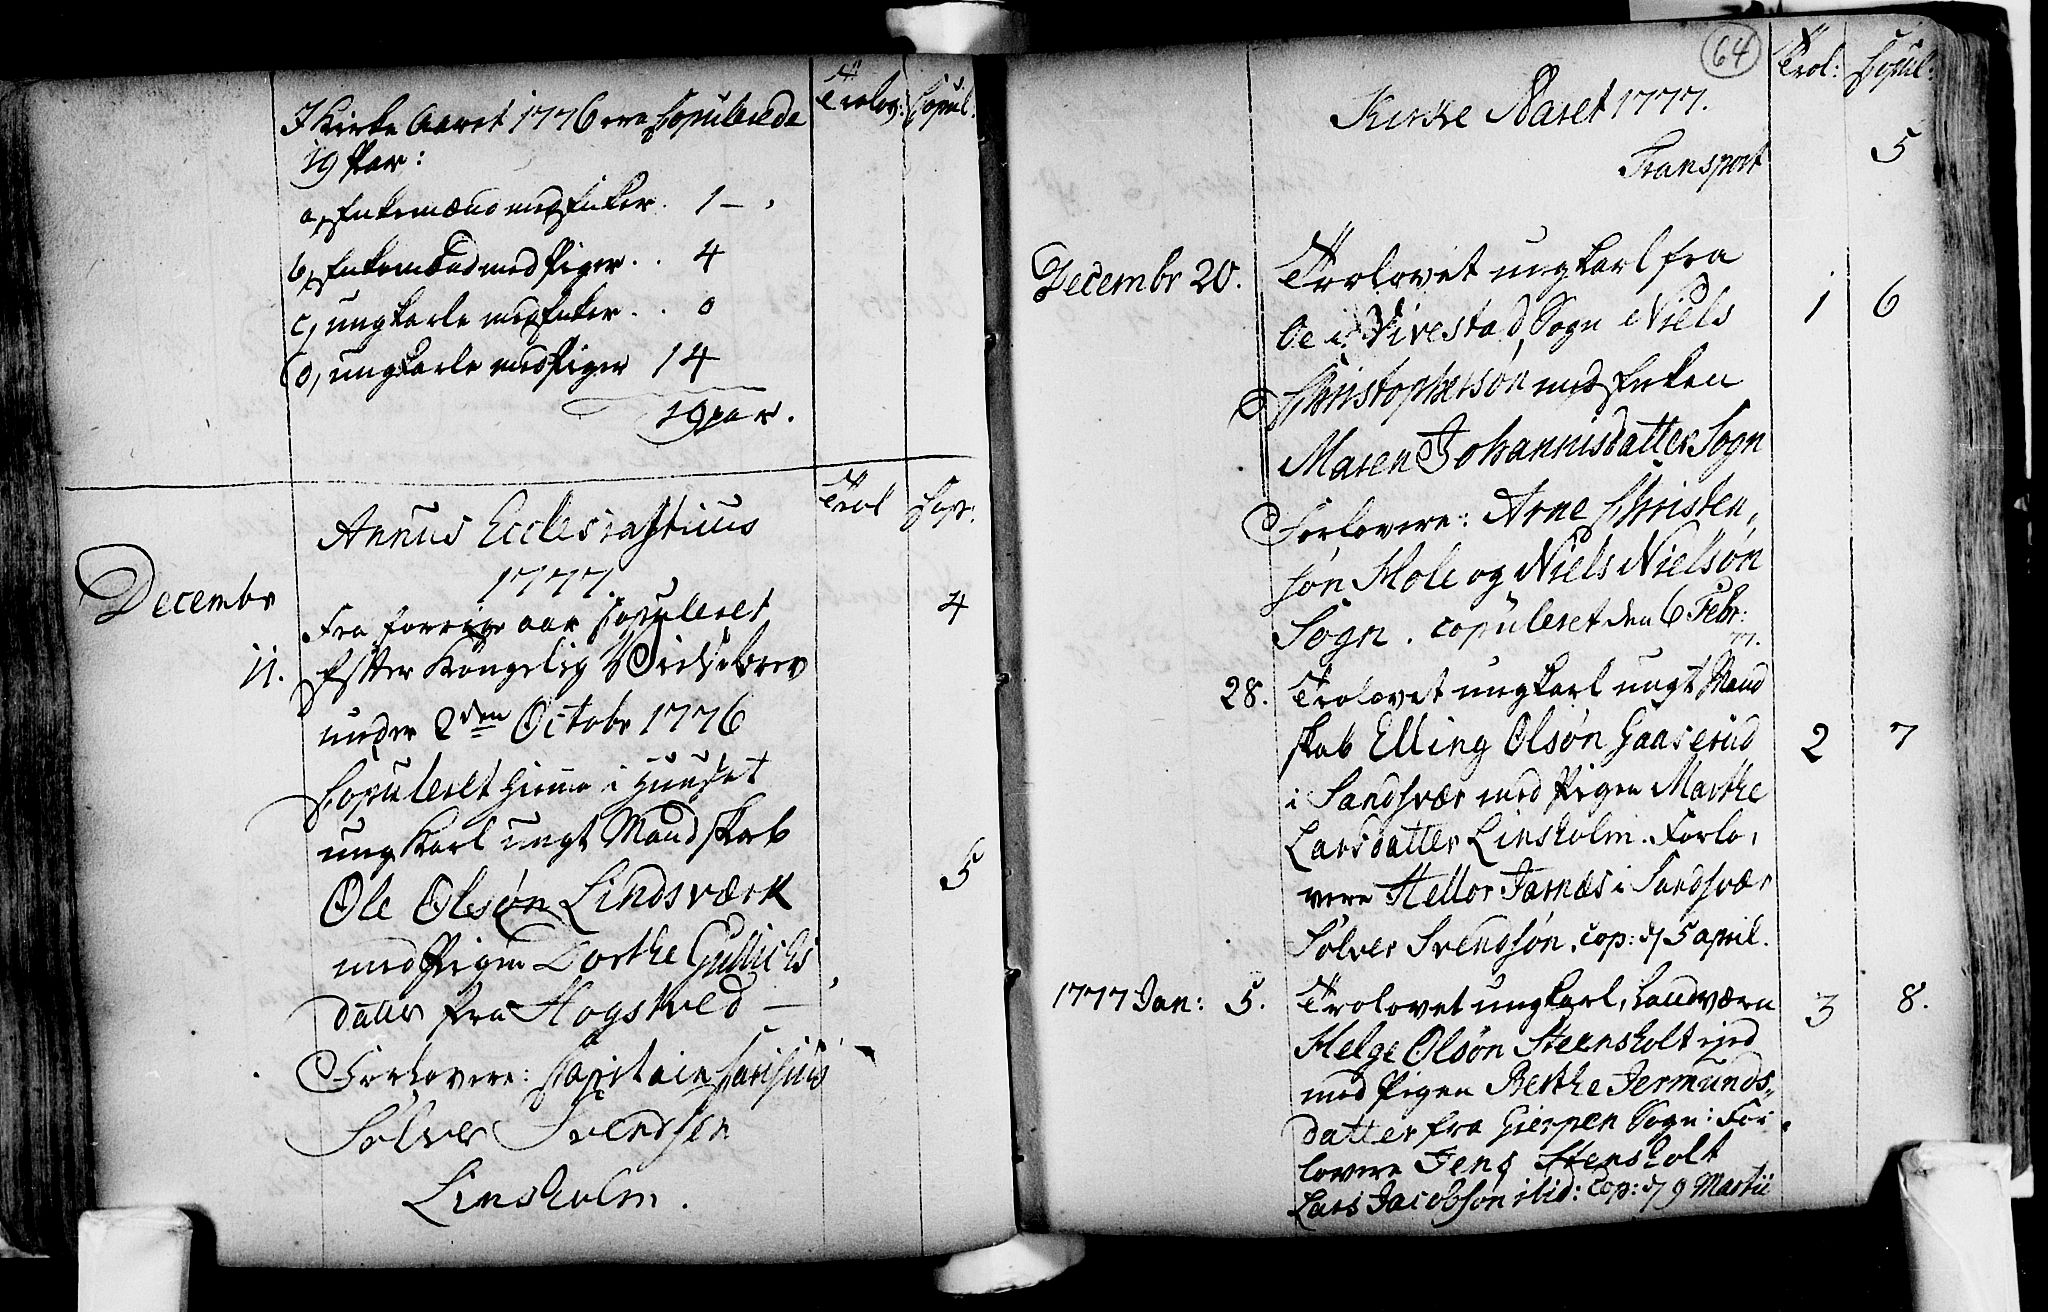 Trolov: Copul:
I Kirke Aaret 1776 ere Copulerede
19 Par:
a, Enkemænd med Enker. 1 –
b, Enkemænd med Piger. . 4
c, ungkarle med Enker. . 0
d, ungkarle med Piger 14
19 par.
Trol Cop:
Annus Ecclesiasticus
1777.
Decembr
Fra forrige aar Copuleret 4
11. Efter Kongelig
under 2den Octobr 1776
Copuleret hiemme i Huuset
ung Karl ungt Mandskab
5
Ole Olsøn Lindsværk
med Pigen Dorthe Gullichs
datter fra Hogstved —
Forlovere: Capitain
Solver Svendsen
Linsholm.
64
Trol: Copul:
Kirke Aaret 1777.
Transport 5
Decembr 20. Trolovet ungkarl fra
Oe i Vivestad Sogn Niels 1 6
Christophersøn med Enken
Maren Johannisdatter Sogn
Forlovere: Arne Christen,
søn Hole og Niels Nielsøn
Sogn. copuleret den 6 Febr:
77.
28. Trolovet ungkarl ungt Mand
skab Elling Olsøn Gaaserud 2 7
i Sandsvær med Pigen Marthe
Larsdatter Linsholm. Forlo,
vere Hellor Jarnæs i Sandsvær
Solver Svendsøn. Cop: d 5 april.
1777 Jan: 5. Trolovet ungkarl, Landværn 3 8.
Helge Olsøn Steensholt
med Pigen Berthe Jermunds,
datter fra Gierpen Sogn: For
lovere Jens Stensholt
Lars Jacobsøn ibid: Cop: d 9 Martii